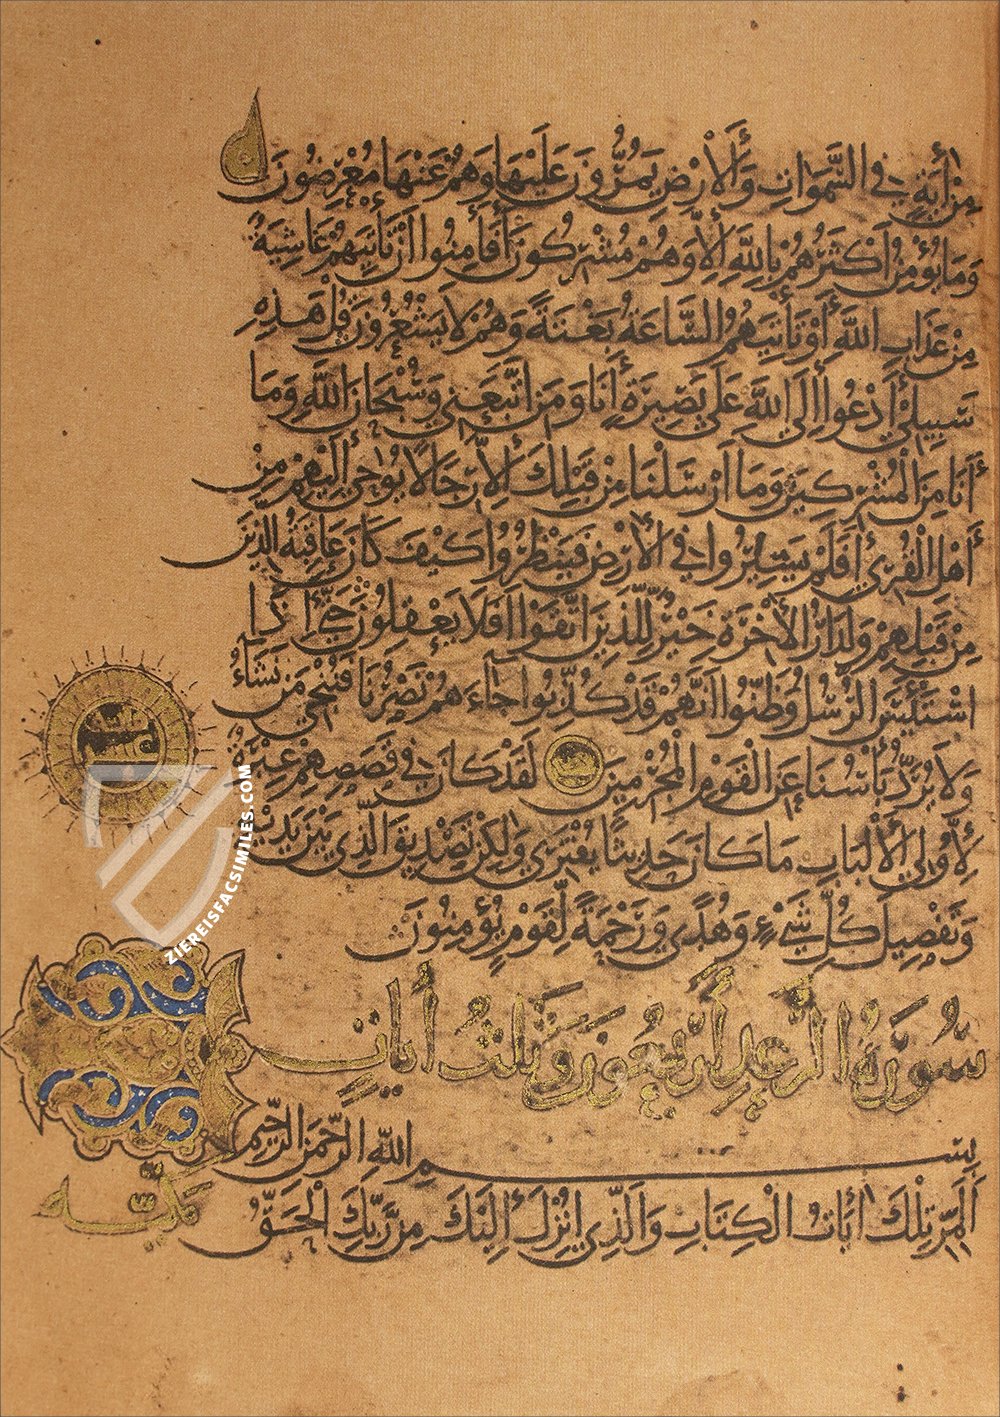 مِنْ آيَةٍ فِي السَّمَوَاتِ وَالْأَرْضِ يَمُرُّونَ عَلَيْهَا وَهُمْ عَنْهَا مُعْرِضُونَ
وَمَا يُؤْمِنُ أَكْثَرُهُمْ بِاللَّهِ إِلَّا وَهُمْ مُشْرِكُونَ أَفَأَمِنُوا أَنْ تَأْتِيَهُمْ غَاشِيَةٌ
مِنْ عَذَابِ اللَّهِ أَوْ تَأْتِيَهُمُ السَّاعَةُ بَغْتَةً وَهُمْ لَا يَشْعُرُونَ قُلْ هَذِهِ
سَبِيلِي أَدْعُوا إِلَى اللَّهِ عَلَى بَصِيرَةٍ أَنَا وَمَنِ اتَّبَعَنِي وَسُبْحَانَ اللَّهِ وَمَا
أَنَا مِنَ الْمُشْرِكِينَ وَمَا أَرْسَلْنَا مِنْ قَبْلِكَ إِلَّا رِجَالًا يُوحَى إِلَيْهِمْ مِنْ
أَهْلِ الْقُرَى أَفَلَمْ يَسِيرُوا فِي الْأَرْضِ فَيَنْظُرُوا كَيْفَ كَانَ عَاقِبَةُ الَّذِينَ
مِنْ قَبْلِهِمْ وَلَدَارُ الْآخِرَةِ خَيْرٌ لِلَّذِينَ اتَّقَوْا أَفَلَا يَعْقِلُونَ حَتَّى إِذَا
اسْتَيْئَسَ الرُّسُلُ وَظَنُّوا أَنَّهُمْ قَدْ كُذِّبُوا جَاءَهُمْ نَصْرُنَا فَنُنْجِي مَنْ نَشَاءُ
وَلَا يُرَدُّ بَأْسُنَا عَنِ الْقَوْمِ الْمُجْرِمِينَ لَقَدْ كَانَ فِي قَصَصِهِمْ عِبْرَةٌ
لِأُولِي الْأَلْبَابِ مَا كَانَ حَدِيثًا يُفْتَرَى وَلَكِنْ تَصْدِيقَ الَّذِي بَيْنَ يَدَيْهِ
وَتَفْصِيلَ كُلِّ شَيْءٍ وَهُدًى وَرَحْمَةً لِقَوْمٍ يُؤْمِنُونَ
سُورَةُ الرَّعْدِ أَرْبَعُونَ وَثَلَثُ آيَاتٍ
بِسْمِ اللَّهِ الرَّحْمَنِ الرَّحِيمِ
الٓمّٓر تِلْكَ آيَاتُ الْكِتَابِ وَالَّذِي أُنْزِلَ إِلَيْكَ مِنْ رَبِّكَ الْحَقُّ
مَكِّيَّة
ZIEREISFACSIMILES.COM